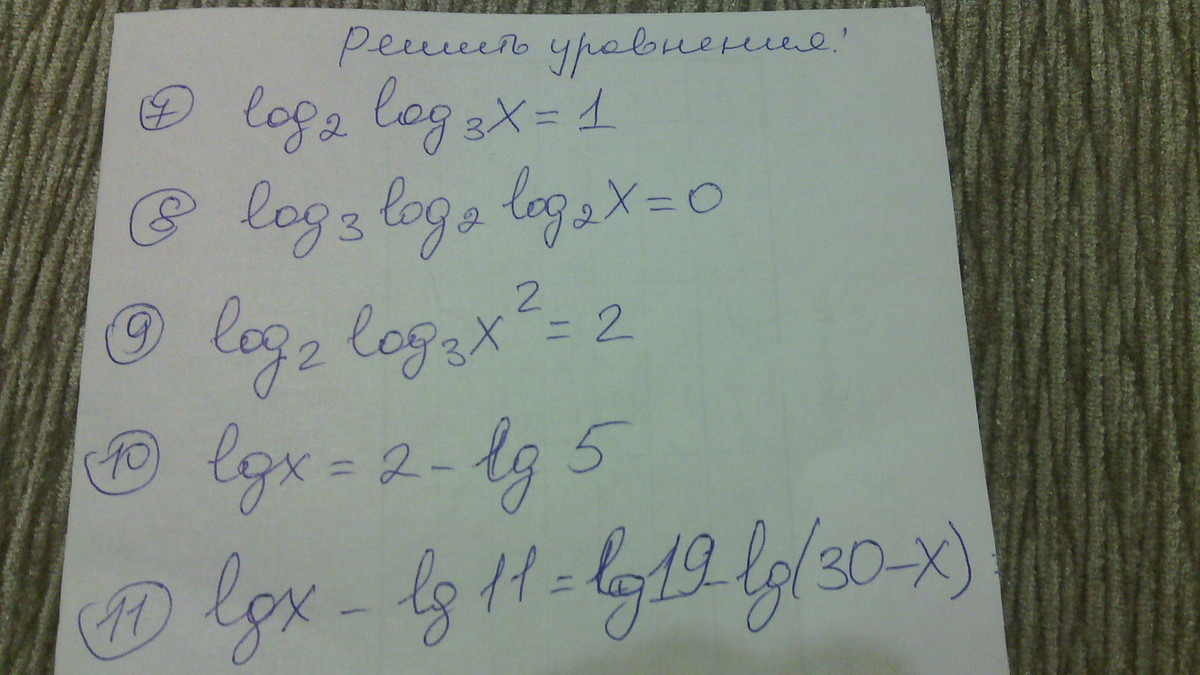 Решить уравнения:
7 log₂ log₃x = 1
8 log₃ log₂ log₂x = 0
9 log₂ log₃x² = 2
10 lgx = 2 - lg 5
11 lgx - lg 11 = lg19 - lg(30-x)